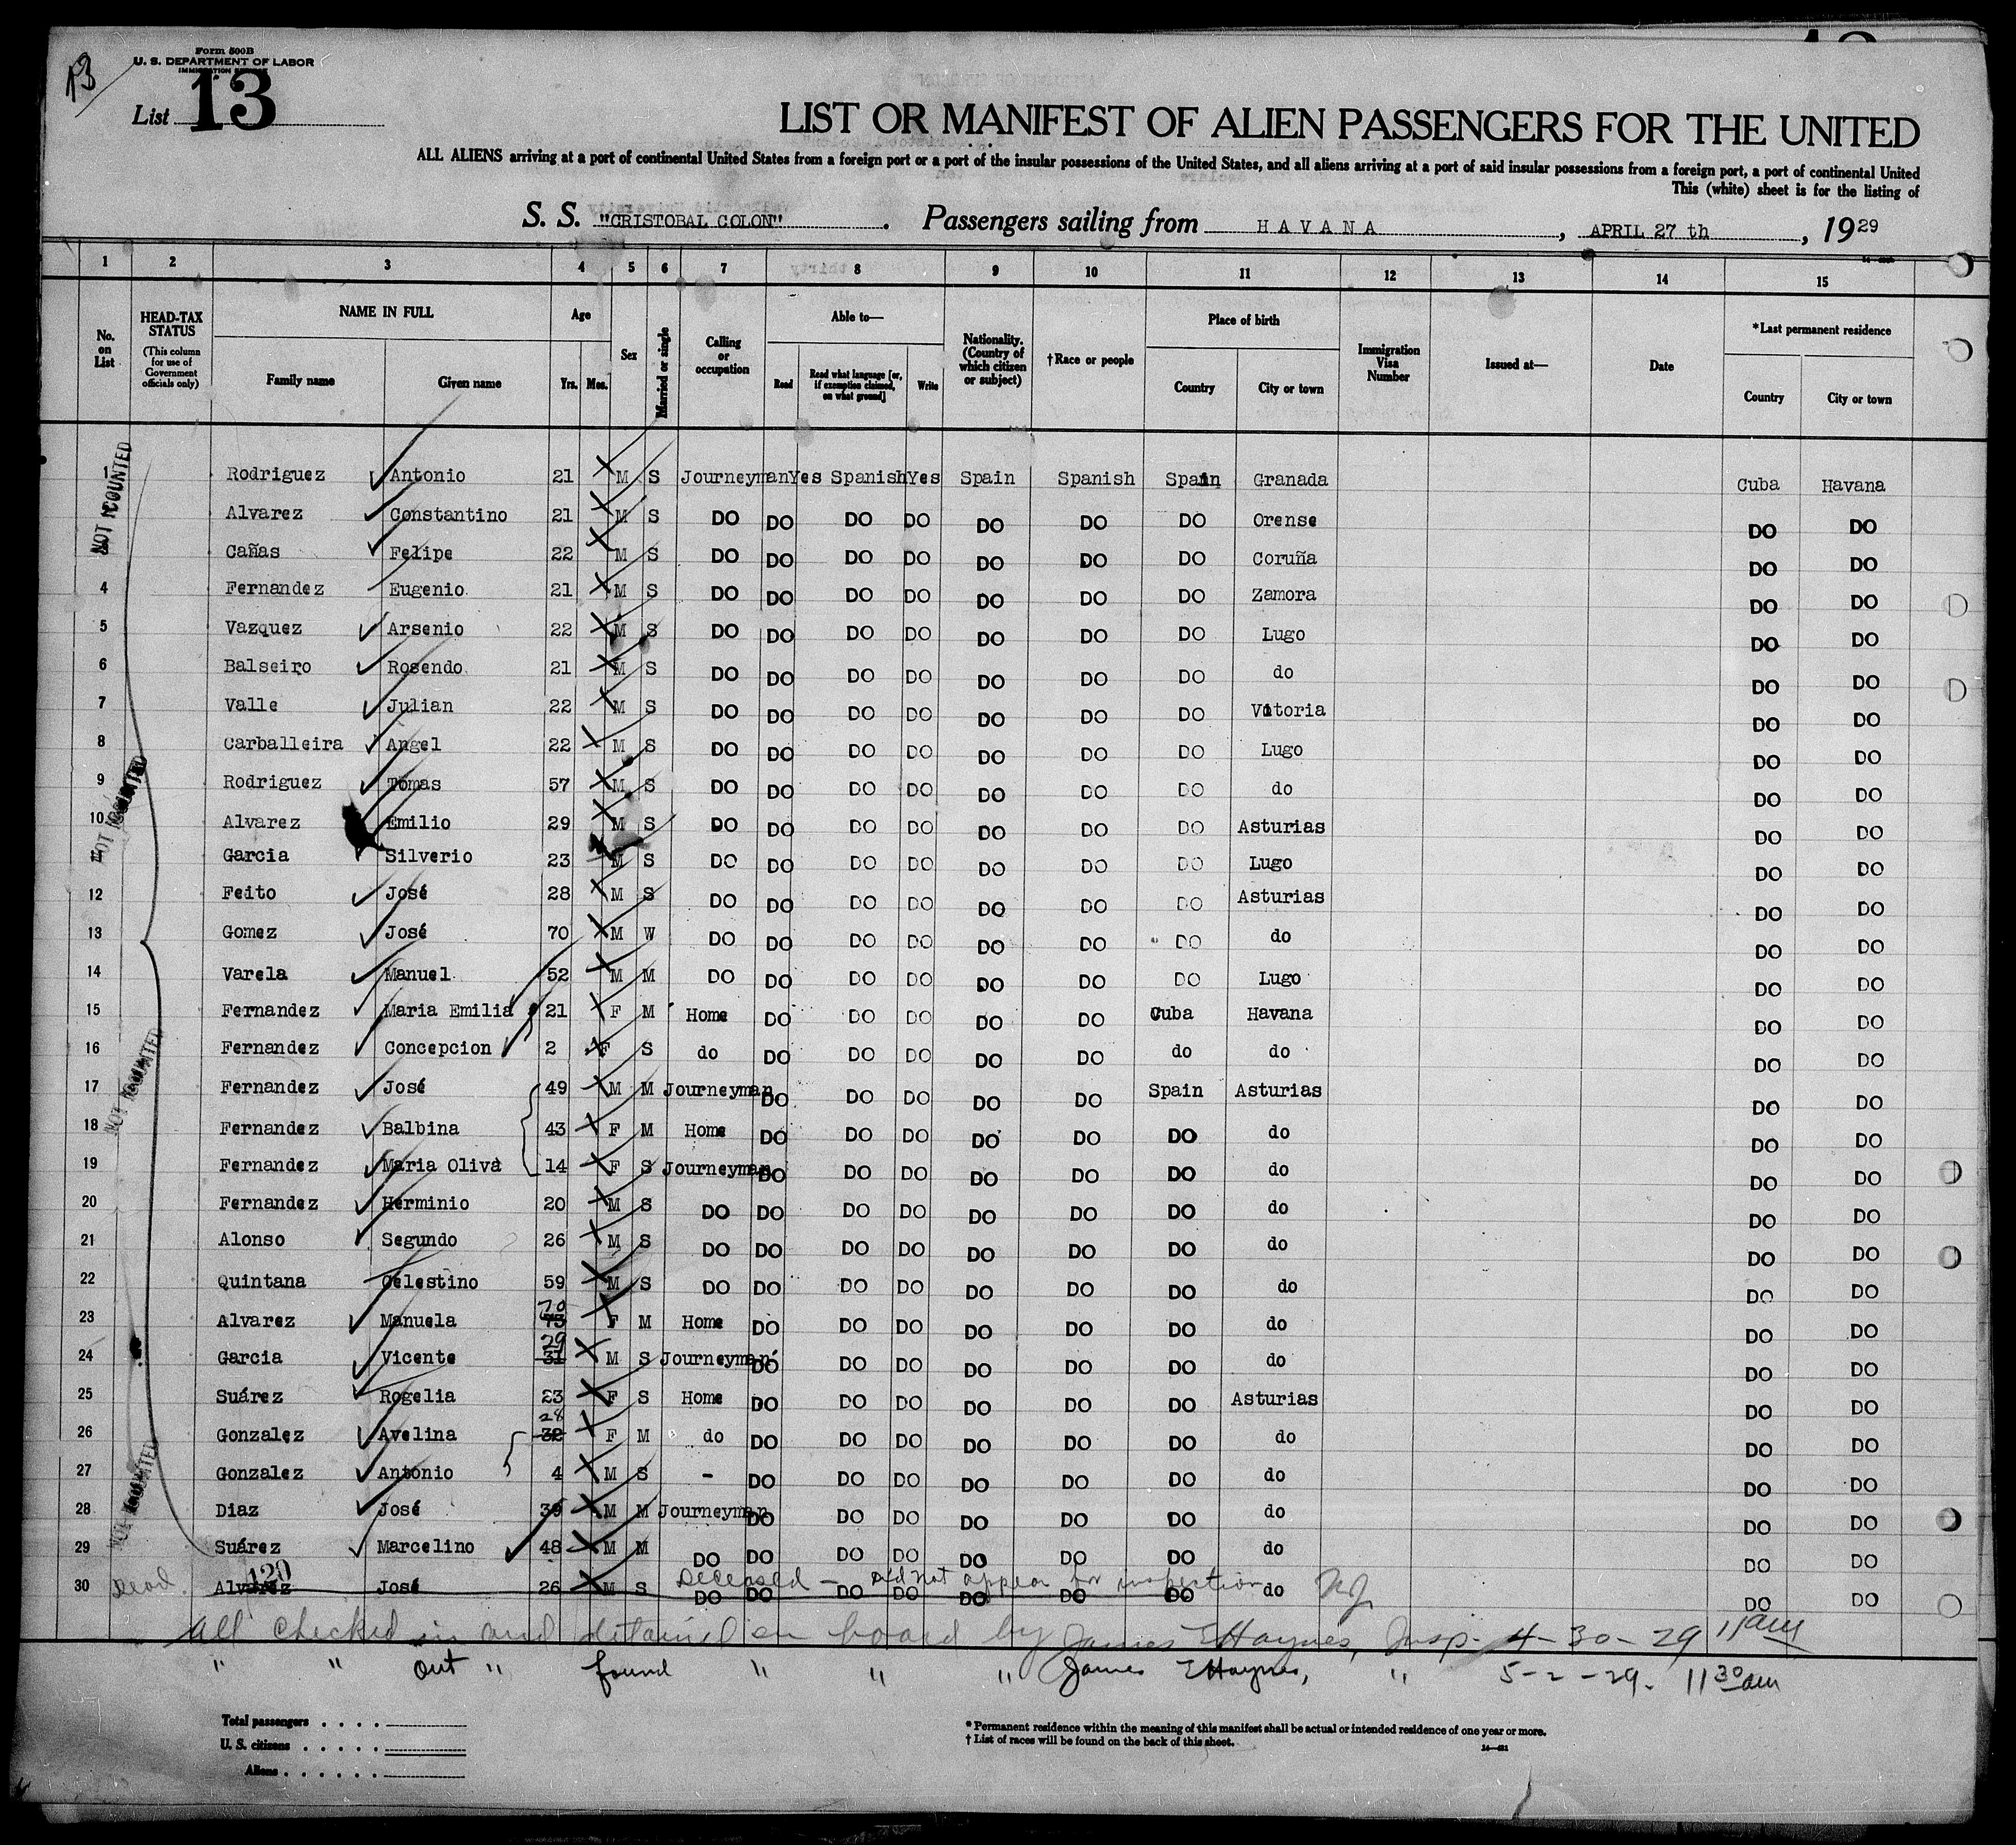 13
Form 500B
U. S. DEPARTMENT OF LABOR
IMMIGRATION SERVICE
List 13
LIST OR MANIFEST OF ALIEN PASSENGERS FOR THE UNITED
ALL ALIENS arriving at a port of continental United States from a foreign port or a port of the insular possessions of the United States, and all aliens arriving at a port of said insular possessions from a foreign port, a port of continental United
This (white) sheet is for the listing of
S. S. "CRISTOBAL COLON". Passengers sailing from HAVANA, APRIL 27 th, 1929
1 2 3 4 5 6 7 8 9 10 11 12 13 14 15
No. on List
HEAD-TAX STATUS (This column for use of Government officials only)
NAME IN FULL Family name Given name
Age Yrs. Mos.
Sex
Married or single
Calling or occupation
Able to— Read Read what language [or, if exemption claimed, on what ground] Write
Nationality. (Country of which citizen or subject)
†Race or people
Place of birth Country City or town
Immigration Visa Number
Issued at—
Date
*Last permanent residence Country City or town
NOT RCOUNTED
1 Rodriguez Antonio 21 M S Journeyman Yes Spanish Yes Spain Spanish Spain Granada Cuba Havana
Alvarez Constantino 21 M S DO DO DO DO DO DO DO Orense DO DO
Cañas Felipe 22 M S DO DO DO DO DO DO DO Coruña DO DO
4 Fernandez Eugenio 21 M S DO DO DO DO DO DO DO Zamora DO DO
5 Vazquez Arsenio 22 M S DO DO DO DO DO DO DO Lugo DO DO
6 Balseiro Rosendo 21 M S DO DO DO DO DO DO DO do DO DO
7 Valle Julian 22 M S DO DO DO DO DO DO DO Vitoria DO DO
8 Carballeira Angel 22 M S DO DO DO DO DO DO DO Lugo DO DO
9 Rodriguez Tomas 57 M S DO DO DO DO DO DO DO do DO DO
10 Alvarez Emilio 29 M S DO DO DO DO DO DO DO Asturias DO DO
11 Garcia Silverio 23 M S DO DO DO DO DO DO DO Lugo DO DO
12 Feito José 28 M S DO DO DO DO DO DO DO Asturias DO DO
13 Gomez José 70 M W DO DO DO DO DO DO DO do DO DO
14 Varela Manuel 52 M M DO DO DO DO DO DO DO Lugo DO DO
15 Fernandez Maria Emilia 21 F M Home DO DO DO DO DO Cuba Havana DO DO
16 Fernandez Concepcion 2 F S do DO DO DO DO DO do do DO DO
17 Fernandez José 49 M M Journeyman DO DO DO DO DO Spain Asturias DO DO
18 Fernandez Balbina 43 F M Home DO DO DO DO DO DO do DO DO
19 Fernandez Maria Oliva 14 F S Journeyman DO DO DO DO DO DO do DO DO
20 Fernandez Herminio 20 M S DO DO DO DO DO DO DO do DO DO
21 Alonso Segundo 26 M S DO DO DO DO DO DO DO do DO DO
22 Quintana Celestino 59 M S DO DO DO DO DO DO DO do DO DO
23 Alvarez Manuela 70 F M Home DO DO DO DO DO DO do DO DO
24 Garcia Vicente 29 31 M S Journeyman DO DO DO DO DO DO do DO DO
25 Suárez Rogelia 23 F S Home DO DO DO DO DO DO Asturias DO DO
26 Gonzalez Avelina 28 32 F M do DO DO DO DO DO DO do DO DO
27 Gonzalez Antonio 4 M S - DO DO DO DO DO DO do DO DO
28 Diaz José 39 M M Journeyman DO DO DO DO DO DO do DO DO
29 Suárez Marcelino 48 M M DO DO DO DO DO DO DO do DO DO
120
Deceased - did not appear for inspection
30 Dead Alvarez José 26 M S DO DO DO DO DO DO DO do DO DO
All checked in and detained on board by James E Haynes, Insp. 4-30-29 11 am
" " Out " found " " " James E Haynes, " 5-2-29. 11 30 am
Total passengers . . . .
U. S. citizens . . . . .
Aliens . . . . . .
* Permanent residence within the meaning of this manifest shall be actual or intended residence of one year or more.
† List of races will be found on the back of this sheet.